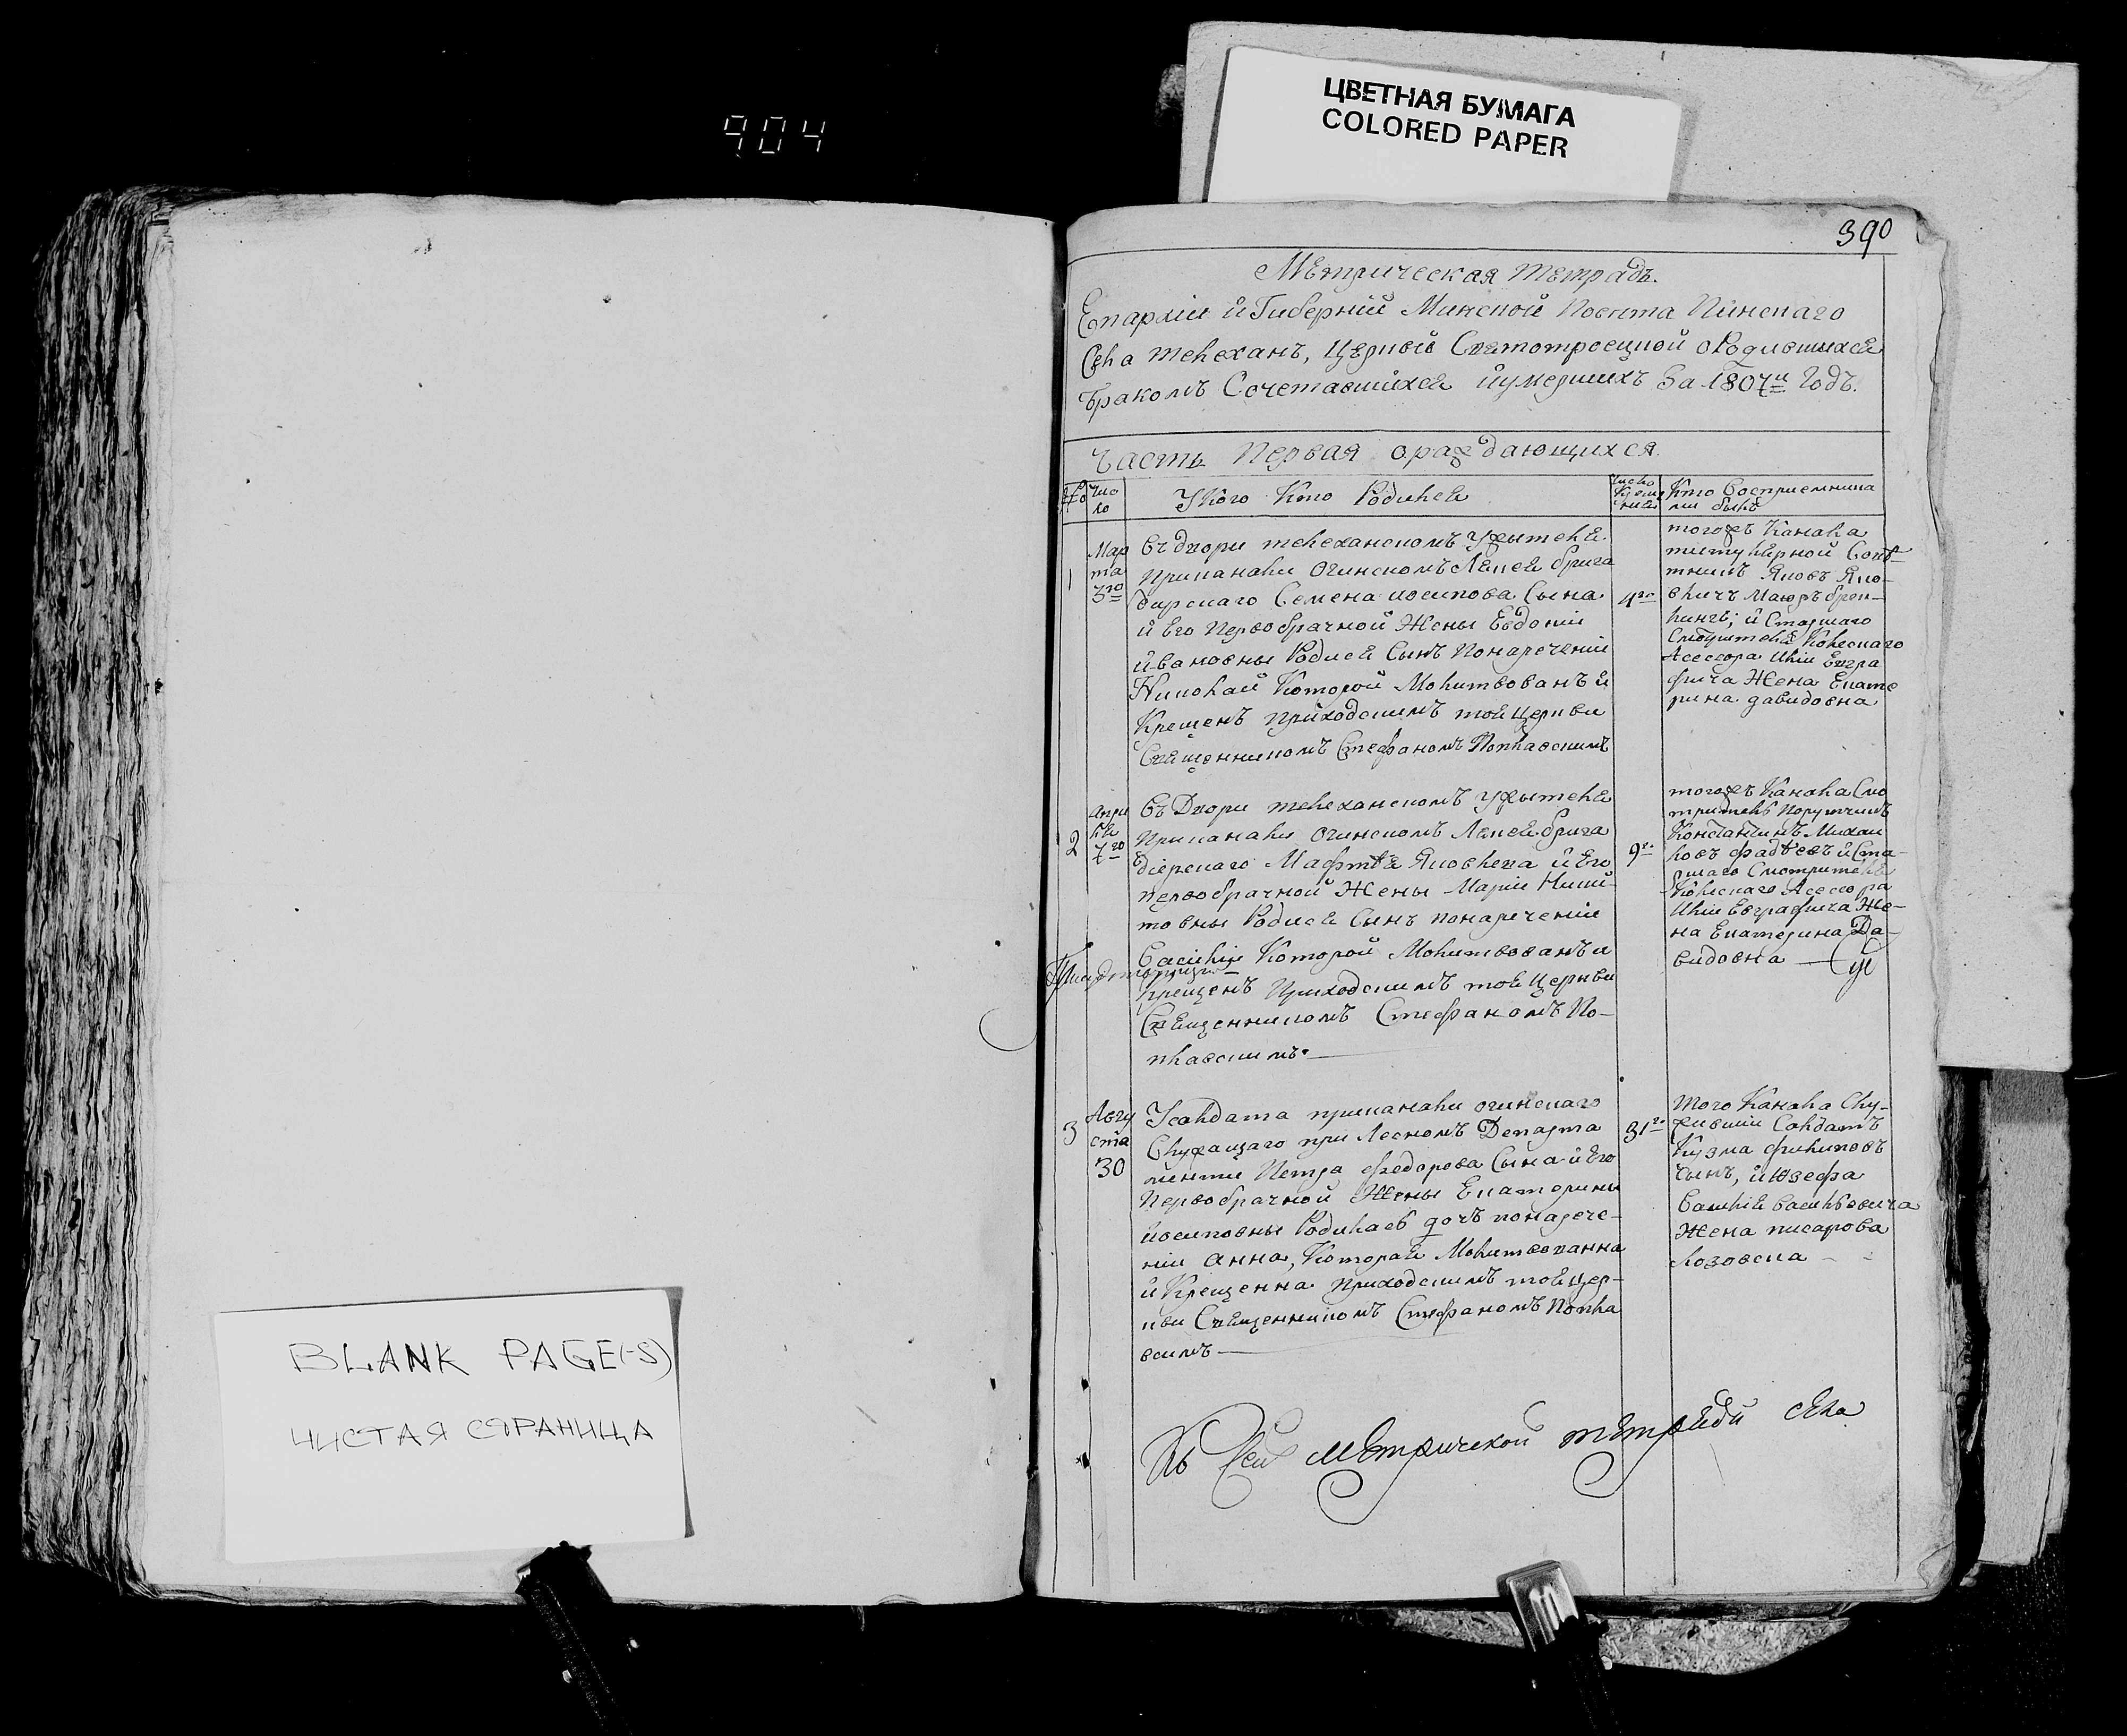 904
ЦВЕТНАЯ БУМАГА
COLORED PAPER
390
Метрическая тетрадь.
Епархіи и Губерніи Минской Повѣта Пинскаго
Села телехань, Церкви Святотроецкой о Родившихся
Бракомъ Сочетавшихся и умершихъ За 1807й Годъ.
Часть Первая о раждающихся.
№
Чис
ло
У Кого Кто Родился
Число
Креще
нія
Кто Восприемника
ми былъ
1
Мар
та
3го
Въ двори телеханскомъ у жителя
При канали Огинскомъ
Семена иосипова Сына
и Его Первобрачной Жены Евдокіи
Ивановны Родися Сынъ По наречении
Николай Которой Молитвованъ и
Крещенъ приходскимъ тоя Церкви
Священникомъ Стефаномъ Поплавскимъ
4го
тогожъ Канала
титулярной Совѣ
тникъ Яковъ Яко-
вличъ
и Старшаго
Смотрителя Колескаго
Асессора Иліи Евгра
фича Жена Екате
рина давидовна
2
Апри
ля
7го
Въ Двори телеханскомъ у жителя
При канали Огинскомъ
Яковлева и Его
первобрачной Жены Маріи Ники-
товны Родися Сынъ по наречении
Василій Которой Молитвованъ и
Крещенъ Приходскимъ тоя Церкви
Священникомъ Стефаномъ По-
плавскимъ
9го
тогожъ Канала Смо
тритель Порутчикъ
Константинъ Михаи
ловъ Фадѣевъ и Ста-
ршаго Смотрителя
Колескаго Асессора
Иліи Евграфича Же-
на Екатерина Да-
видовна
3
Авгу
ста
30
У солдата при канали огинскаго
Служащаго при Лесномъ Департа
менти Петра Федорова Сына и Его
Первобрачной Жены Екатерины
Иосиповны Родилась дочъ по нарече-
нии Анна, Которая Молитвованна
и Крещенна Приходскимъ тоя Цер-
кви Священникомъ Стефаномъ Попла
вскимъ
31го
Того Канала Слу-
жившій Солдатъ
Кузма Филиповъ
Сынъ, и Юзефа
Васильевича
Жена писарова
Лозовска
Къ Сей метрической тетради села
BLANK PAGE(-S)
ЧИСТАЯ СТРАНИЦА